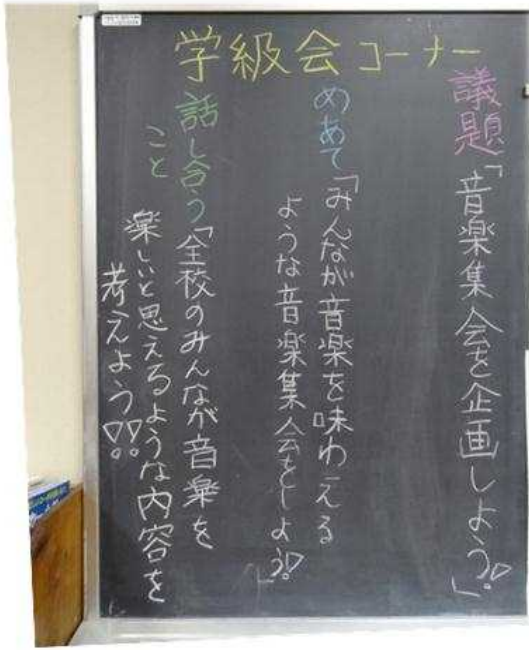 学級会コーナー
議題「音楽集会を企画しよう!!」
めあて「みんなが音楽を味わえる
ような音楽集会をしよう!!」
話し合う「全校のみんなが音楽を
こと
楽しいと思えるような内容を
考えよう!!